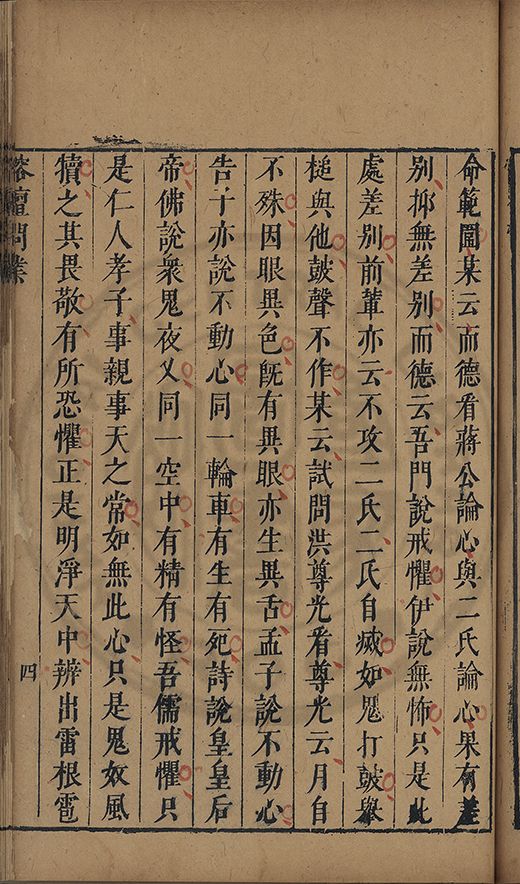 命範圍某云而德看蔣公論心與二氏論心果有差
別抑無差別而德云吾門說戒懼伊說無怖只是此
處差別前輩亦云不攻二氏二氏自滅如鬼打皷舉
槌與他皷聲不作某云試問洪尊光看尊光云月自
不殊因眼異色旣有異眼亦生異舌孟子說不動心
告子亦說不動心同一輪車有生有死詩說皇皇后
帝佛說衆鬼夜叉同一空中有精有怪吾儒戒懼只
是仁人孝子事親事天之常如無此心只是鬼奴風
犢之其畏敬有所恐懼正是明淨天中辨出雷根雹
榕壇問業
四